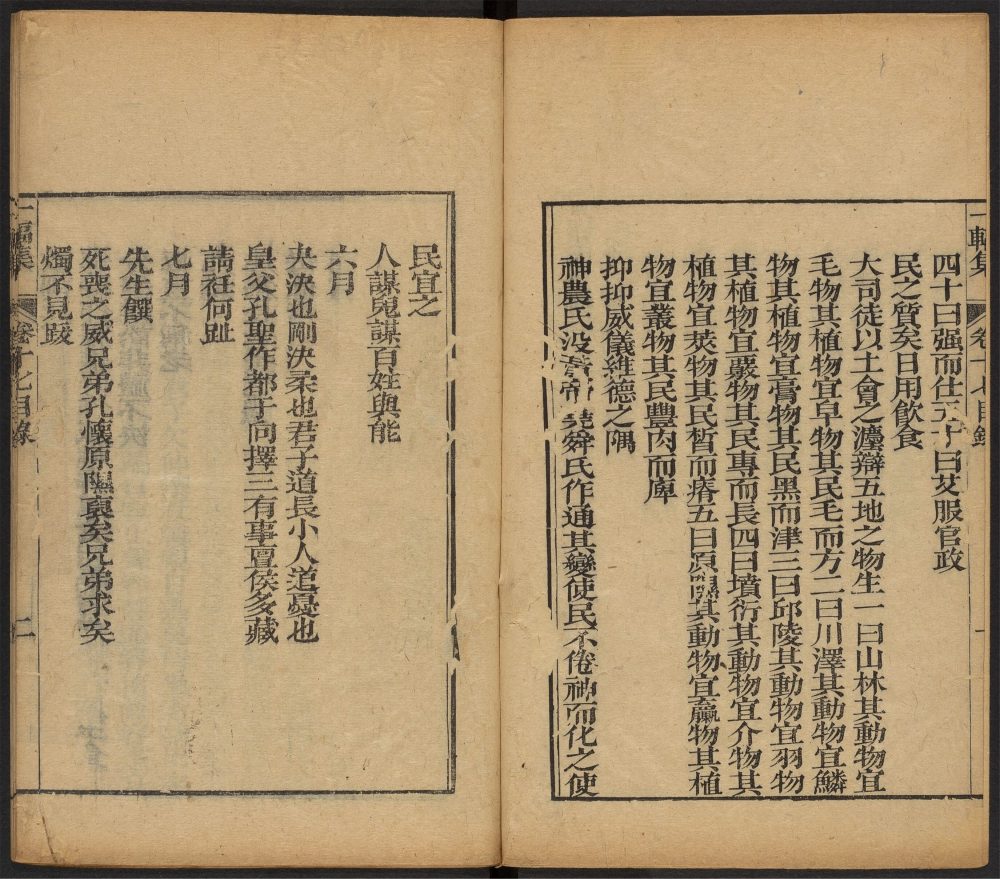 四十曰强而仕五十曰艾服官政
民之質矣日用飲食
大司徒以土會之灋辯五地之物生一曰山林其動物宜
毛物其植物宜早物其民毛而方二曰川澤其動物宜鱗
物其植物宜膏物其民黑而津三曰邱陵其動物宜羽物
其植物宜覈物其民專而長四曰墳衍其動物宜介物其
植物宜莢物其民皙而瘠五曰原隰其動物宜臝物其植
物宜叢物其民豐肉而庳
抑抑威儀維德之隅
神農氏没黃帝堯舜氏作通其變使民不倦神而化之使
民宜之
人謀鬼謀百姓與能
六月
夬決也剛決柔也君子道長小人道憂也
皇父孔聖作都于向擇三有事亶侯多藏
請衽何趾
七月
先生饌
死喪之威兄弟孔懷原隰裒矣兄弟求矣
燭不見跋
集
卷十七目錄
二
集
卷十七目錄
一